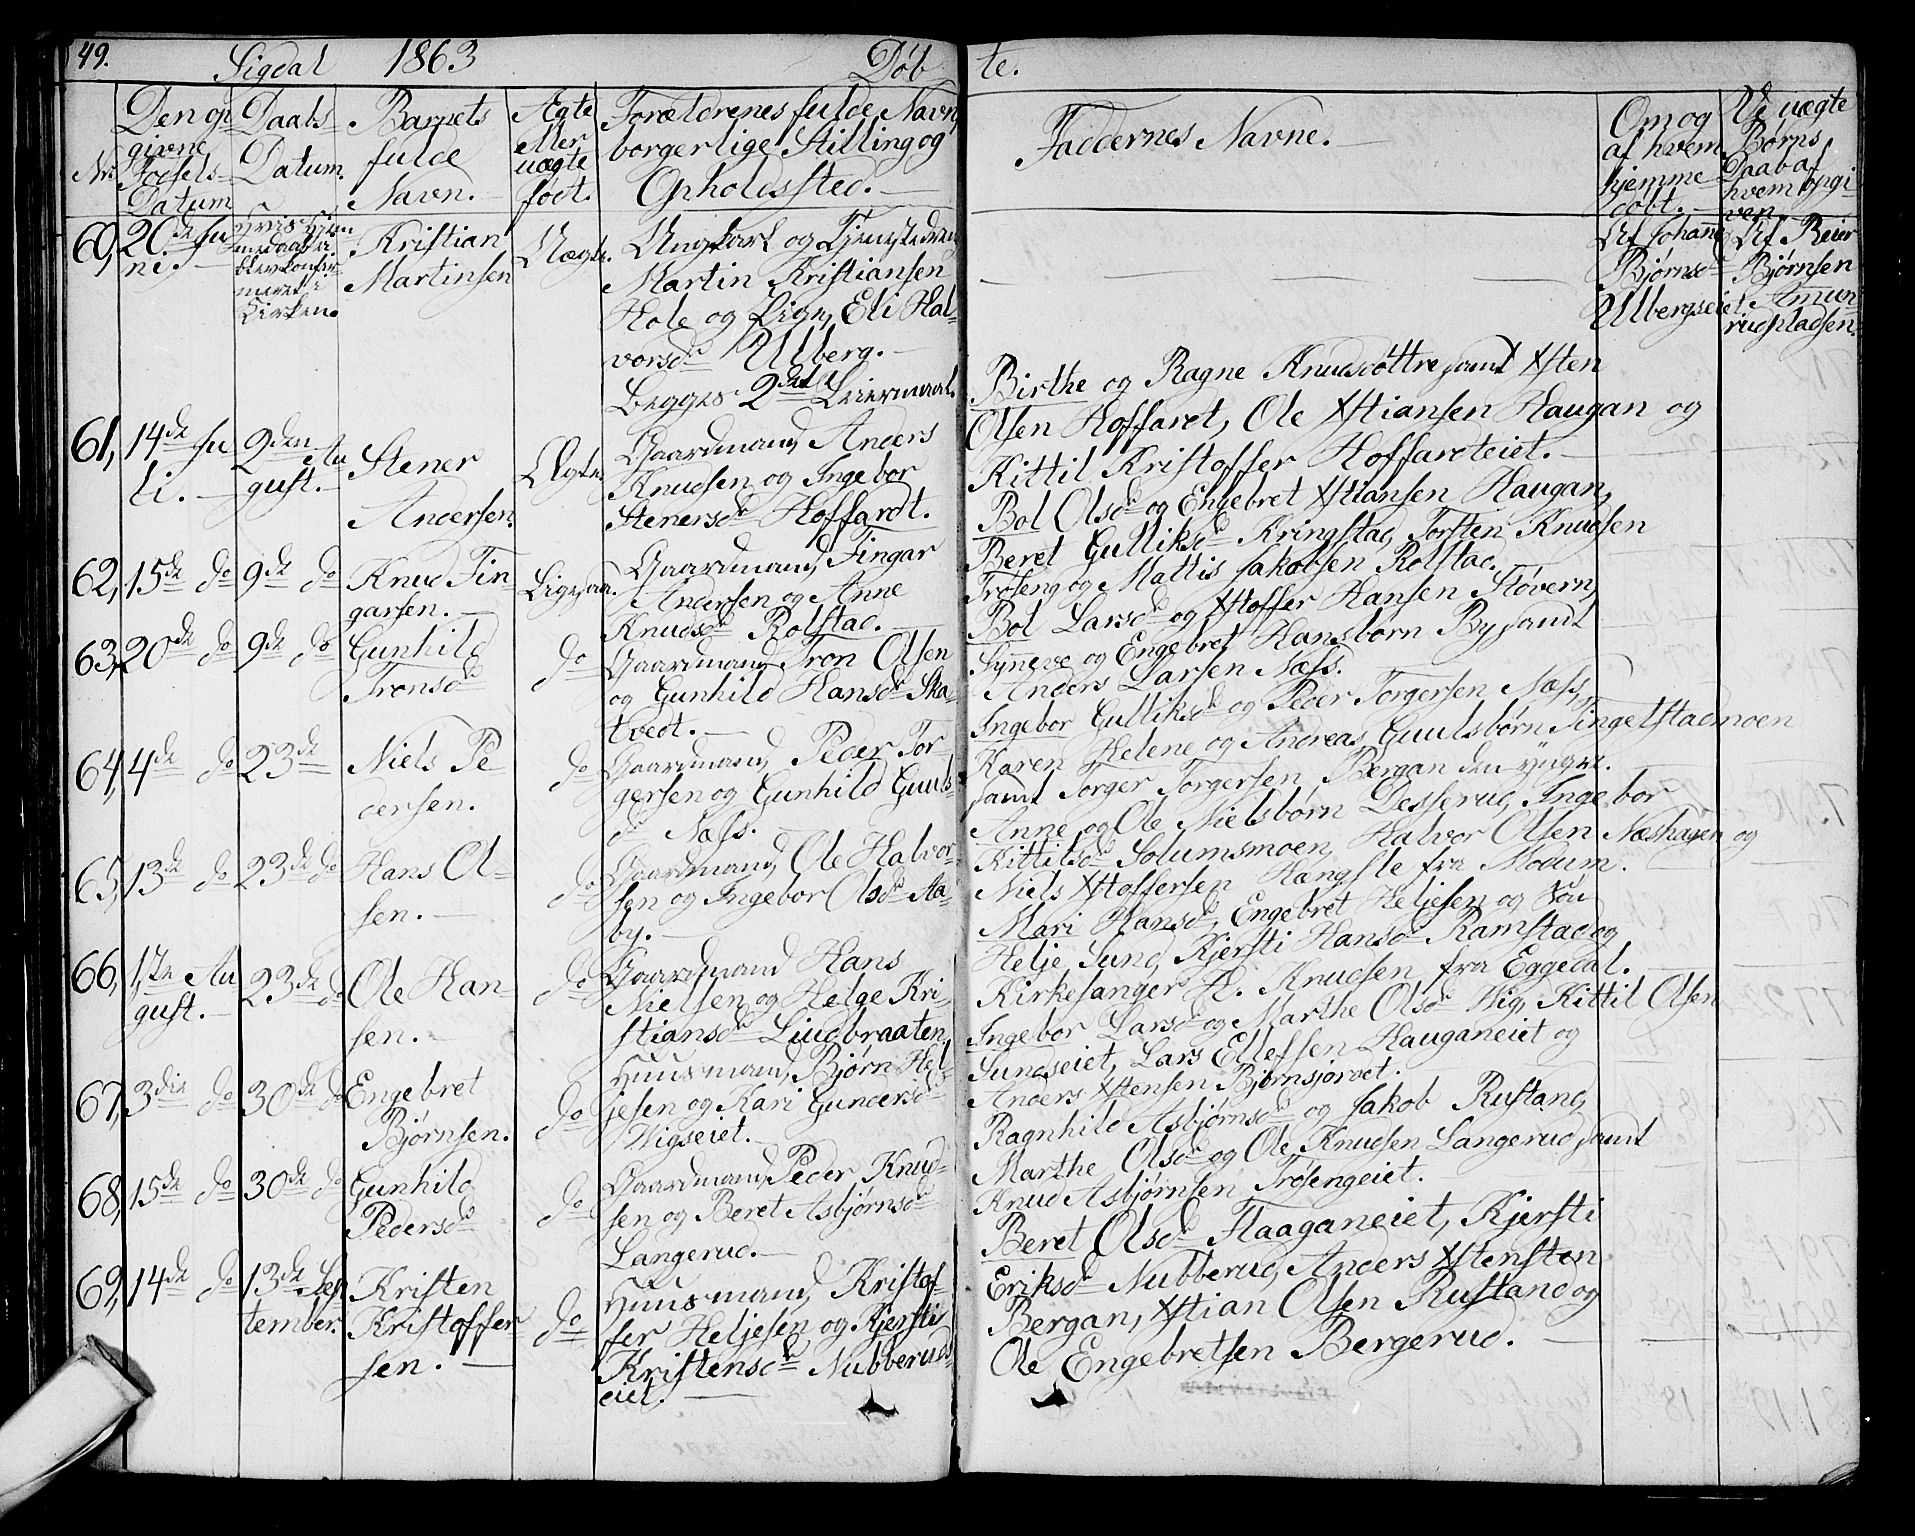 49. Sigdal 1863 Døb te.
Nr. Den op givne Fødsels Datum
Daabs Datum.
Barnets fulde Navn.
Ægte eller uægte født.
Forældrenes fulde Navn, borgerlige Stilling og Opholdssted.
Faddernes Navne.
Om og af hvem hjemme døbt.
Ve uægte Børns Daab af hvem opgi ven.
60, 20de Ju
ni.
Kristian
Martinsen
Uægte.
Ungkarl og Tjenestedreng
Martin Kristiansen
Hole og Pige, Eli Hal-
vorsdr Ulberg.
Begges 2det Leiermaal.
Af Johane
Bjørnsdr
Ulbergseiet.
Af Reier
Bjørnsen
Amun
rudpladsen.
61, 14de Ju
li.
2den Au
gust.
Stener
Andersen.
Ægte
Gaardmand, Anders
Knudsen og Ingebor
Stenersdr Hoffardt.
Birthe og Ragne Knudsdøttre samt Xsten
Olsen Hoffardt, Ole Xstiansen Haugan og
Kittil Kristoffer Hoffardteiet.
62, 15de do 9de do
Knud Fin
garsen.
Ligesaa.
Gaardmand, Fingar
Andersen og Anne
Knudsdr Rolstad.
Bol Olsdr og Engebret Xstiansen Haugan,
Beret Gulliksdr Kringstad, Torsten Knudsen
Trøseng og Mattis Jakobsen Rolstad.
63, 20de do 9de do
Gunhild
Tronsdr
do
Gaardmand, Tron Olsen
og Gunhild Hansdr Ska-
tvedt.
Bol Larsdr og Xstoffer Hansen Støvern,
Synneve og Engebret Hansbørn By samt
Anders Larsen Næss.
64, 4de do 23de
Niels Pe
dersen.
do
Gaardmand, Peder Tor
gersen og Gunhild Guuls-
dr Næss.
Ingebor Gulliksdr og Peder Torgersen Næss,
Karen Helene og Andreas Guulsbørn Tingelstadmoen
samt Torger Torgersen Bergan den yngre.
65, 13de do 23de do
Hans Ol-
sen.
do
Gaardmand, Ole Halvor-
sen og Ingebor Olsdr Aa-
by.
Anne og Ole Nielsbørn Desserud, Ingebor
Kittilsdr Solumsmoen, Halvor Olsen Næshagen og
Niels Xstoffersen Hangsle fra Modum.
66, 17de Au
gust.
23de do
Ole Han-
sen.
do
Gaardmand Hans
Nielsen og Helge Kri-
stiansdr Liudbraaten,
Mari Hansdr, Engebret Heljesen og Søn
Helje Sund, Kjersti Hansdr Ramstad og
Kirkesanger H. Knudsen fra Eggedal.
67, 3die do 30de do
Engebret
Bjørnsen.
do
Huusmand, Bjørn Hel-
jesen og Kari Gundersdr
Wigseiet.
Ingebor Larsdr og Marthe Olsdr Wig, Kittil Olsen
Sundseiet, Lars Ellefsen Hauganeiet og
Anders Xstensen Bjørnsjordet.
68, 15de do 30de do
Gunhild
Pedersdr
do
Gaardmand Peder Knud-
sen og Beret Asbjørnsdr
Langerud.
Ragnhild Asbjørnsdr og Jakob Rustand,
Marthe Olsdr og Ole Knudsen Langerud samt
Knud Asbjørnsen Trøsengeiet.
69, 14de do 13de Sep
tember.
Kristen
Kristoffer
sen.
do
Huusmand, Kristof-
fer Heljesen og Kjersti
Kristensdr Nubberuds
eiet.
Beret Olsdr Flaaganeiet, Kjersti
Eriksdr Nubberud, Anders Xstensten
Bergan, Xstian Olsen Rustand og
Ole Engebretsen Bergerud.